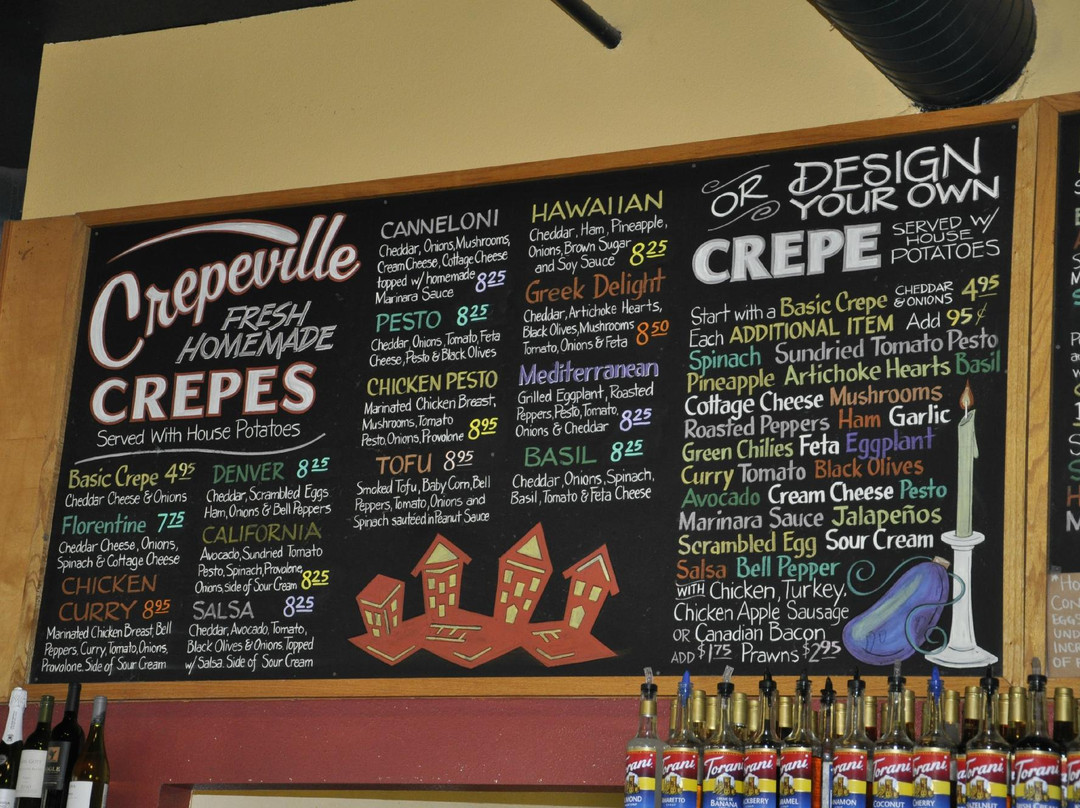 Crepeville
FRESH
HOMEMADE
CREPES
Served With House Potatoes
Basic Crepe 4.95
Cheddar Cheese & Onions
Florentine 7.75
Cheddar Cheese, Onions,
Spinach & Cottage Cheese
CHICKEN
CURRY 8.95
Marinated Chicken Breast, Bell
Peppers, Curry, Tomato, Onions,
Provalone. Side of Sour Cream
DENVER 8.25
Cheddar, Scrambled Eggs
Ham, Onions & Bell Peppers
CALIFORNIA
Avocado, Sundried Tomato
Pesto, Spinach, Provolone,
Onions, side of Sour Cream 8.25
SALSA 8.25
Cheddar, Avocado, Tomato,
Black Olives & Onions. Topped
w/ Salsa. Side of Sour Cream
CANNELONI
Cheddar, Onions, Mushrooms,
Cream Cheese, Cottage Cheese
topped w/ homemade
Marinara Sauce 8.25
PESTO 8.25
Cheddar, Onions, Tomato, Feta
Cheese, Pesto & Black Olives
CHICKEN PESTO
Marinated Chicken Breast,
Mushrooms, Tomato
Pesto, Onions, Provalone 8.95
TOFU 8.95
Smoked Tofu, Baby Corn, Bell
Peppers, Tomato, Onions and
Spinach sautéed in Peanut Sauce
HAWAIIAN
Cheddar, Ham, Pineapple,
Onions, Brown Sugar
and Soy Sauce 8.25
Greek Delight
Cheddar, Artichoke Hearts,
Black Olives, Mushrooms
Tomato, Onions & Feta 8.50
Mediterranean
Grilled Eggplant, Roasted
Peppers, Pesto, Tomato,
Onions & Cheddar 8.25
BASIL 8.25
Cheddar, Onions, Spinach,
Basil, Tomato & Feta Cheese
OR DESIGN
YOUR OWN
CREPE SERVED W/
HOUSE
POTATOES
Start with a Basic Crepe CHEDDAR & ONIONS 4.95
Each ADDITIONAL ITEM Add 95¢
Spinach Sundried Tomato Pesto
Pineapple Artichoke Hearts Basil
Cottage Cheese Mushrooms
Roasted Peppers Ham Garlic
Green Chilies Feta Eggplant
Curry Tomato Black Olives
Avocado Cream Cheese Pesto
Marinara Sauce Jalapeños
Scrambled Egg Sour Cream
Salsa Bell Pepper
WITH Chicken, Turkey,
Chicken Apple Sausage
OR Canadian Bacon
ADD $1.75 Prawns $2.95
Torani
Torani
Torani
Torani
Torani
Torani
Torani
Torani
Torani
Torani
BANANA
COCONUT
CHERRY